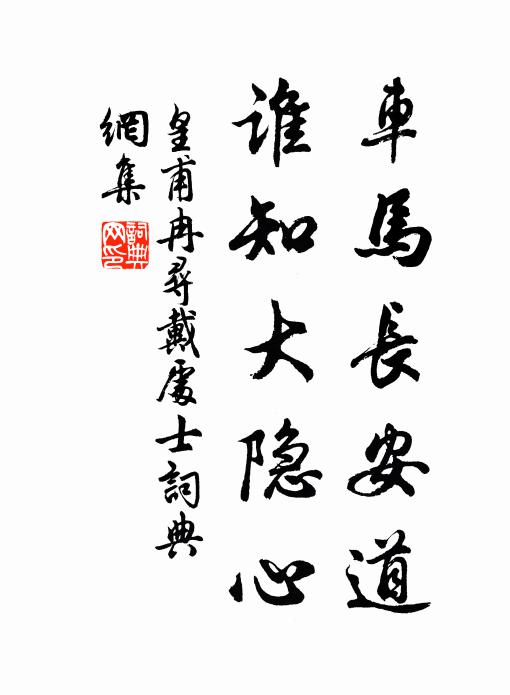 車馬長安道
誰知大隐心
皇甫冉尋戴處士詞典
網集
詞典
网印